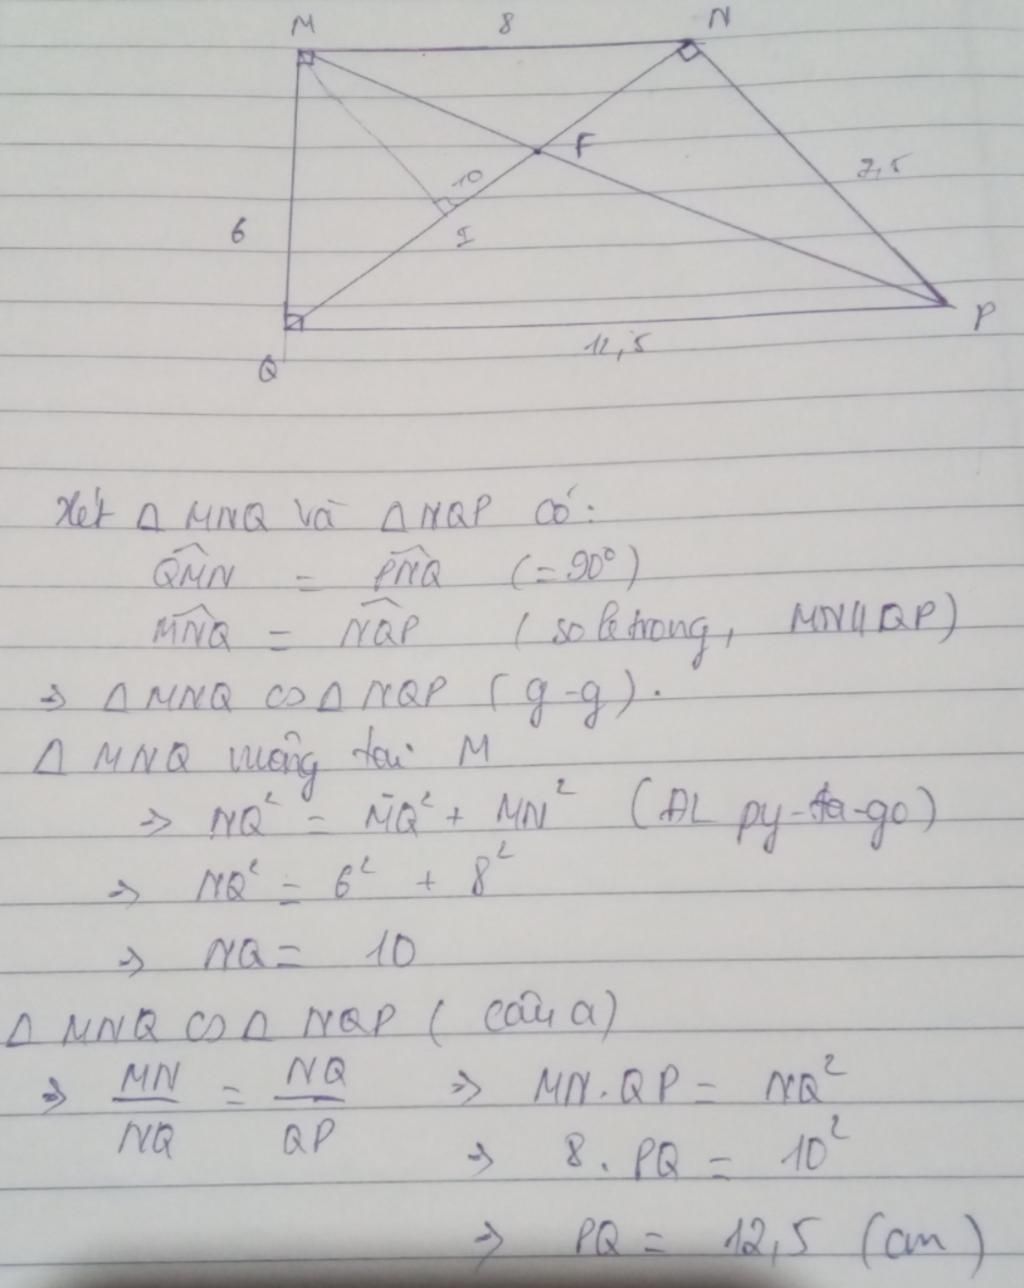 M
8
N
F
7,5
10
6
I
P
12,5
Q
Xét Δ MNQ và Δ NQP có:
$\widehat{QMN}$ = $\widehat{PNQ}$ (=90°)
$\widehat{MNQ}$ = $\widehat{NQP}$ (so le trong, MN//QP)
⇒ Δ MNQ ∽ Δ NQP (g-g).
Δ MNQ vuông tại M
⇒ NQ² = MQ² + MN² (ĐL py-ta-go)
⇒ NQ² = 6² + 8²
⇒ NQ = 10
Δ MNQ ∽ Δ NQP (câu a)
⇒ MN/NQ = NQ/QP ⇒ MN.QP = NQ²
⇒ 8. PQ = 10²
⇒ PQ = 12,5 (cm)